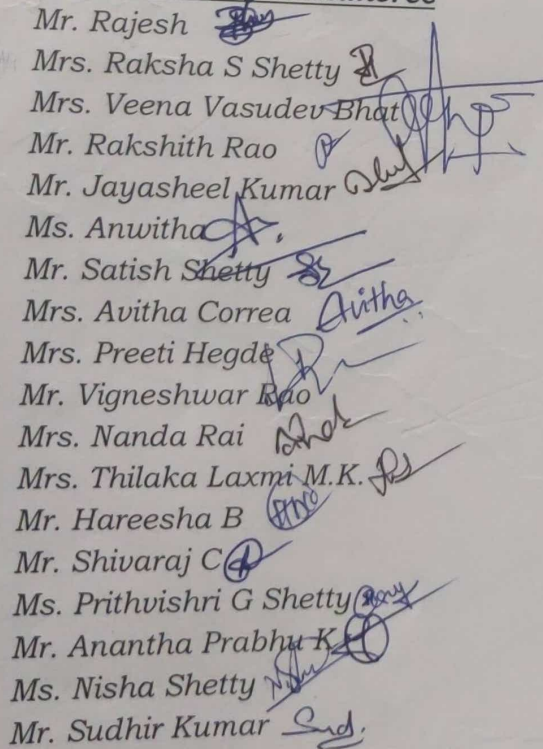 Mr. Rajesh
Mrs. Raksha S Shetty
Mrs. Veena Vasudev Bhat
Mr. Rakshith Rao
Mr. Jayasheel Kumar
Ms. Anwitha
Mr. Satish Shetty
Mrs. Avitha Correa Avitha
Mrs. Preeti Hegde
Mr. Vigneshwar Rao
Mrs. Nanda Rai
Mrs. Thilaka Laxmi M.K.
Mr. Hareesha B
Mr. Shivaraj C
Ms. Prithvishri G Shetty
Mr. Anantha Prabhu K
Ms. Nisha Shetty
Mr. Sudhir Kumar